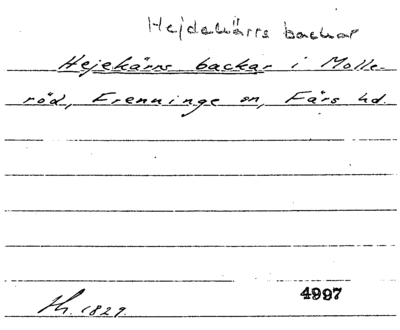 Hejdekärrs backar
Hejekärrs backar i Molle-
röd, Frenninge sn, Färs hd.
4997
Th. 1829.